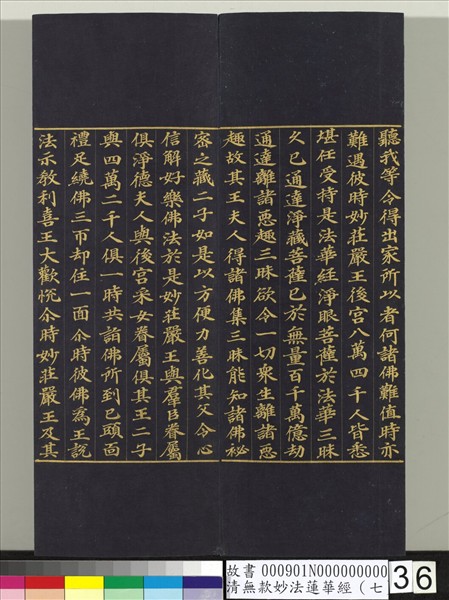 聽我等令得出家所以者何諸佛難值時亦
難遇彼時妙莊嚴王後宮八萬四千人皆悉
堪任受持是法華經淨眼菩薩於法華三昧
久已通達淨藏菩薩已於無量百千萬億劫
通達離諸惡趣三昧欲令一切眾生離諸惡
趣故其王夫人得諸佛集三昧能知諸佛祕
密之藏二子如是以方便力善化其父令心
信解好樂佛法於是妙莊嚴王與羣臣眷屬
俱淨德夫人與後宮采女眷屬俱其王二子
與四萬二千人俱一時共詣佛所到已頭面
禮足繞佛三帀却住一面尒時彼佛為王說
法示教利喜王大歡悅尒時妙莊嚴王及其
故書 000901N000000000
清無款妙法蓮華經（七
36